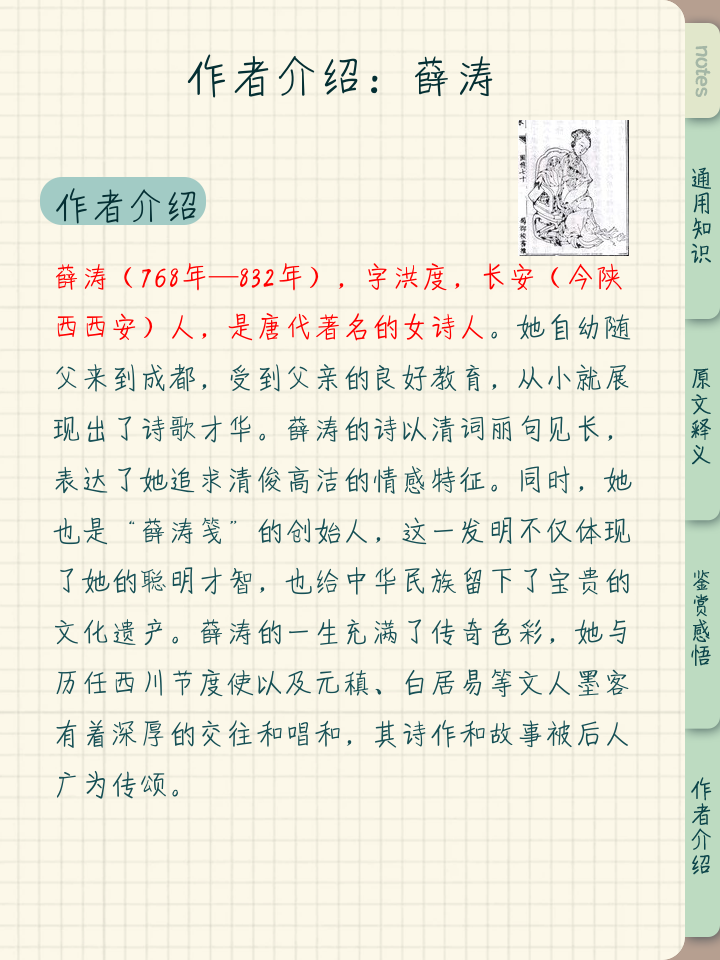 作者介绍：薛涛
作者介绍
薛涛（768年—832年），字洪度，长安（今陕
西西安）人，是唐代著名的女诗人。她自幼随
父来到成都，受到父亲的良好教育，从小就展
现出了诗歌才华。薛涛的诗以清词丽句见长，
表达了她追求清俊高洁的情感特征。同时，她
也是“薛涛笺”的创始人，这一发明不仅体现
了她的聪明才智，也给中华民族留下了宝贵的
文化遗产。薛涛的一生充满了传奇色彩，她与
历任西川节度使以及元稹、白居易等文人墨客
有着深厚的交往和唱和，其诗作和故事被后人
广为传颂。
notes
通用知识
原文释义
鉴赏感悟
作者介绍